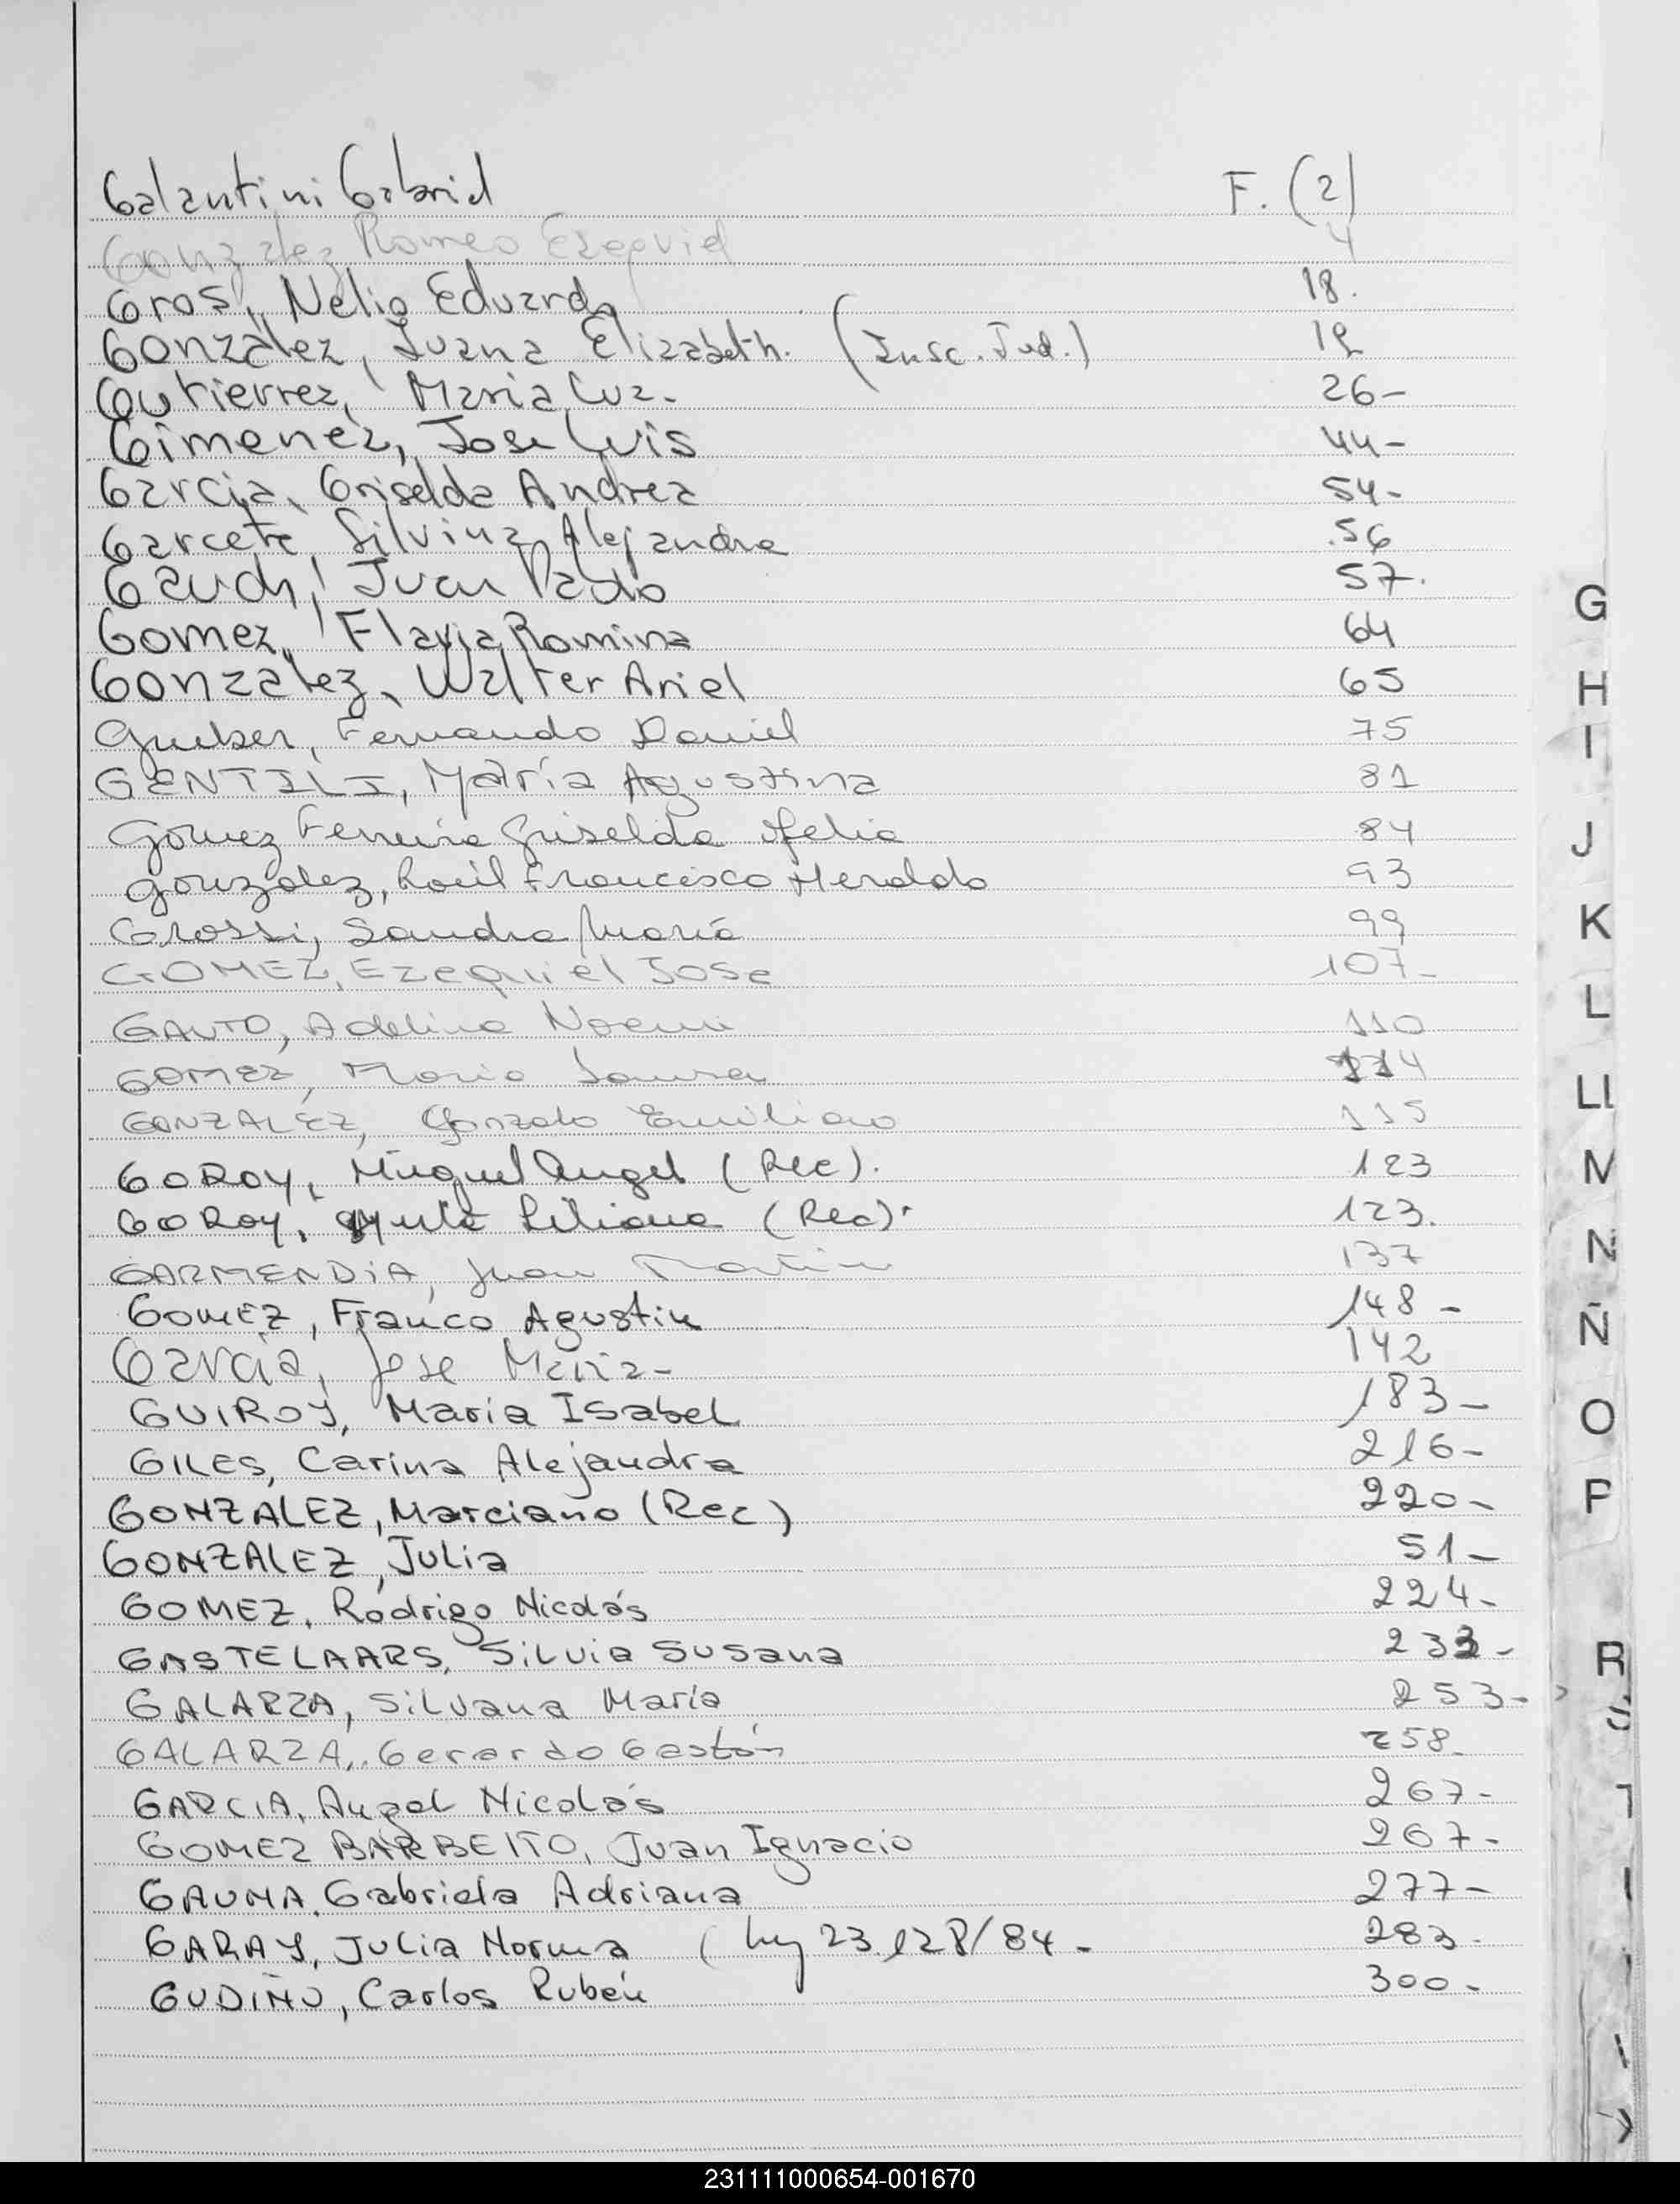 Galantini Gabriel F. (2)
Gonzalez Romeo Ezequiel 4
Gros, Nelio Eduardo 18.
González, Juana Elizabeth. (Insc. Jud.) 19
Gutierrez, Maria Luz. 26-
Gimenez, Jose Luis 44-
Garcia, Griselda Andrea 54-
Garcete, Silvina Alejandra .56
Juan Pablo 57.
Gomez, Flavia Romina 64
Gonzalez, Walter Ariel 65
Fernando Daniel 75
GENTILI, María Agustina 81
Gomez Ferreira Griselda Ofelia 84
González, Raúl Francisco Heraldo 93
Grossi, Sandra María 99
GOMEZ, Ezequiel Jose 107-
GAUTO, Adelina Noemi 110
GOMEZ, Maria Laura 114
GONZALEZ, Gonzalo Emiliano 115
GODOY, Miguel Angel (Rec). 123
GODOY, Liliana (Rec). 123.
GARMENDIA, Juan Martin 137
GOMEZ, Franco Agustin 148-
Garcia, Jose Maria- 142
GUIROY, Maria Isabel 183-
GILES, Carina Alejandra 216-
GONZALEZ, Marciano (Rec) 220-
GONZALEZ, Julia 51-
GOMEZ, Rodrigo Nicolás 224-
GASTELAARS, Silvia Susana 233-
GALARZA, Silvana María 253-
GALARZA, Gerardo Gastón 258-
GARCIA, Angel Nicolás 267-
GOMEZ BARBEITO, Juan Ignacio 267-
GAUNA, Gabriela Adriana 277-
GARAY, Julia Norma (Ley 23.128/84- 283-
GUDIÑO, Carlos Rubén 300-
G
H
I
J
K
L
LL
M
N
Ñ
O
P
R
S
231111000654-001670